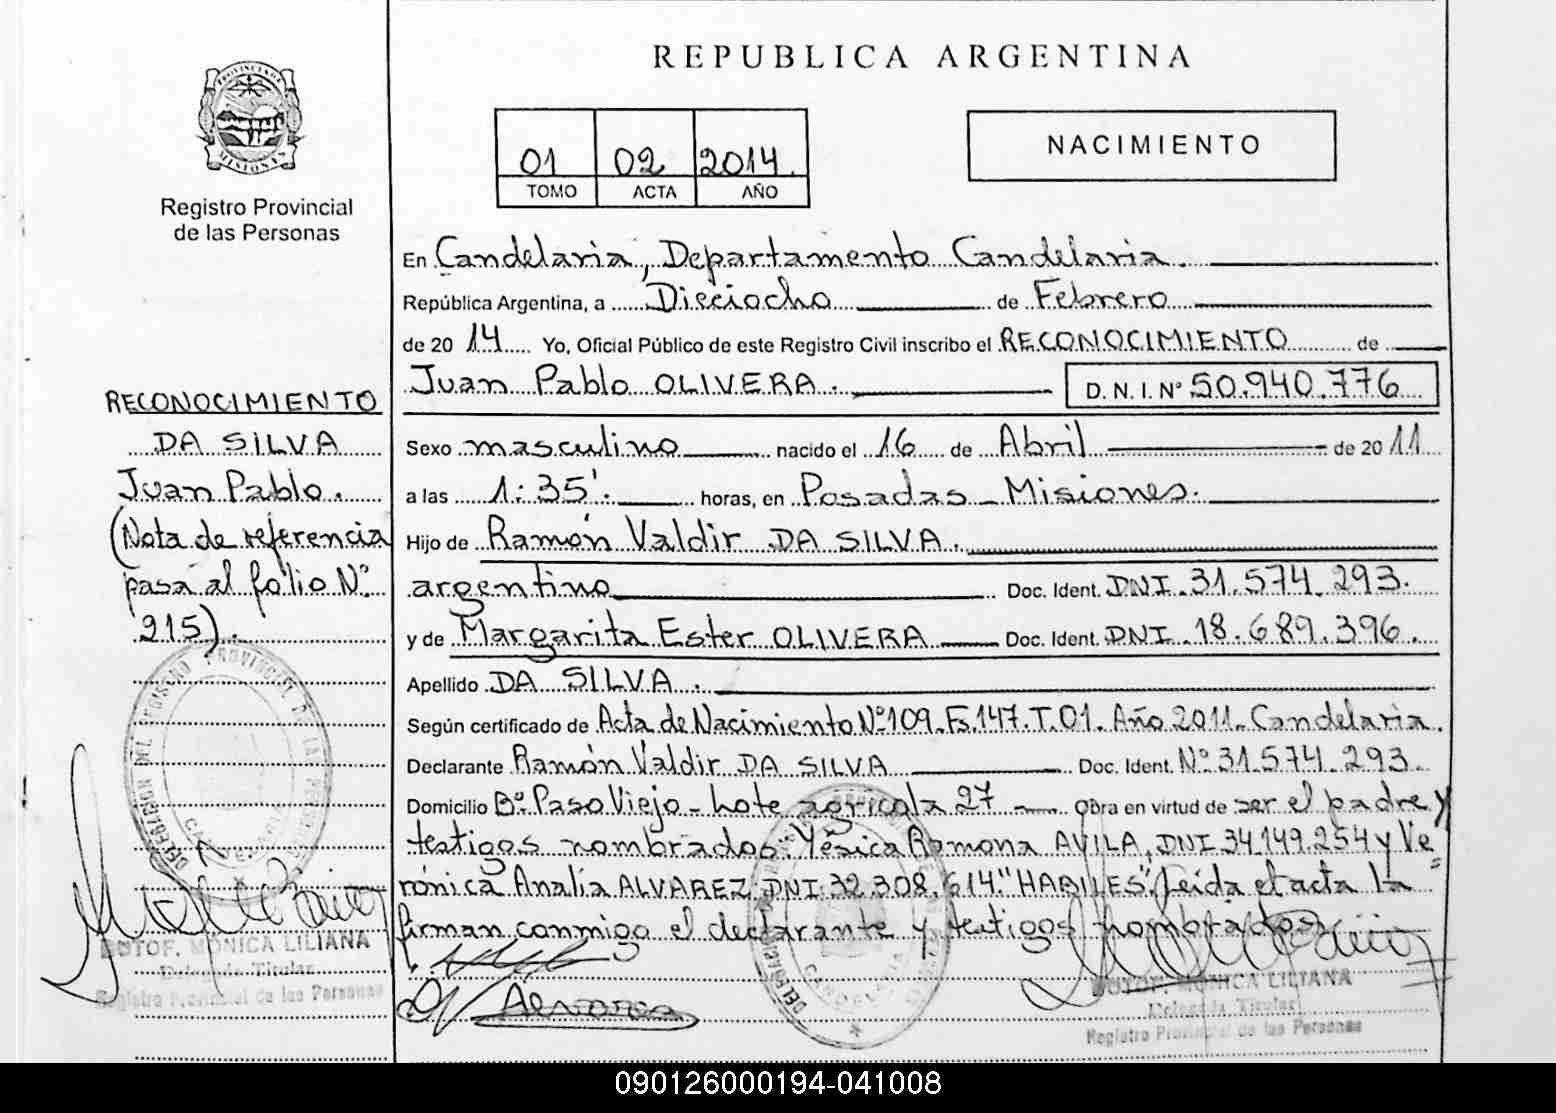 REPUBLICA ARGENTINA
PROVINCIA DE
MISIONES
Registro Provincial
de las Personas
01 02 2014.
TOMO ACTA AÑO
NACIMIENTO
En Candelaria, Departamento Candelaria.
República Argentina, a Dieciocho de Febrero
de 2014 Yo, Oficial Público de este Registro Civil inscribo el RECONOCIMIENTO de
Juan Pablo OLIVERA. D. N. I. Nº 50.940.776
Sexo masculino nacido el 16 de Abril de 2011
a las 1:35'. horas, en Posadas - Misiones.
Hijo de Ramón Valdir DA SILVA.
argentino Doc. Ident. DNI. 31.574.293.
y de Margarita Ester OLIVERA Doc. Ident. DNI. 18.689.396.
Apellido DA SILVA.
Según certificado de Acta de Nacimiento Nº109.Fs.147.T.01.Año 2011. Candelaria.
Declarante Ramón Valdir DA SILVA Doc. Ident. Nº 31.574.293.
Domicilio Bº. Paso Viejo - Lote agricola 27 - Obra en virtud de ser el padre y
testigos nombrados: Yésica Ramona AVILA, DNI 34.149.254 y Ve=
rónica Analía ALVAREZ. DNI. 32.308.614. "HABILES". Leida el acta la
firman conmigo el declarante y testigos nombrados
RECONOCIMIENTO
DA SILVA
Juan Pablo.
(Nota de referencia
pasa al folio Nº.
215).
DELEGACION DEL REGISTRO PROVINCIAL DE LAS PERSONAS
CANDELARIA
BUTOF. MONICA LILIANA
Delegada Titular
Registro Provincial de las Personas
CANDELARIA
BUTOF. MONICA LILIANA
Delegada Titular
Registro Provincial de las Personas
090126000194-041008